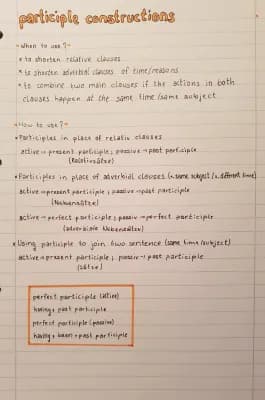 participle constructions
-When to use?-
• to shorten relative clauses
• to shorten adverbial clauses of time/reasons
• to combine two main clauses if the actions in both
clauses happen at the same time/same subject
-How to use?-
• Participles in place of relativ clauses
active → present participle; passive → past participle
(Relativsätze)
• Participles in place of adverbial clauses (1. same subject / 2. different time)
active → present participle; passive → past participle
(Nebensätze)
active → perfect participle; passiv → perfect participle
(adverbiale Nebensätze)
• Using participle to join two sentence (same time/subject)
active → present participle; passiv → past participle
(Sätze)
perfect participle (active)
having + past participle
perfect participle (passive)
having + been + past participle